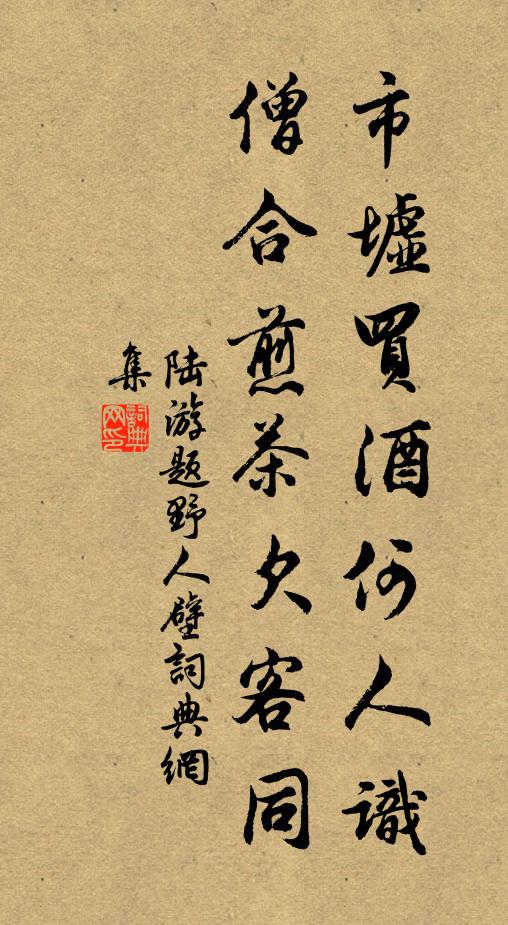 市墟買酒何人識
僧合煎茶欠客同
陆游题野人壁詞典網
集
詞典
网印